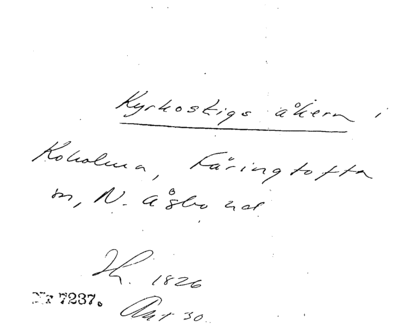 Kyrkostigs åkern i
Koholma, Färingtofta
sn, N. Åsbo hd
1826
Nr 7237.
Akt 30